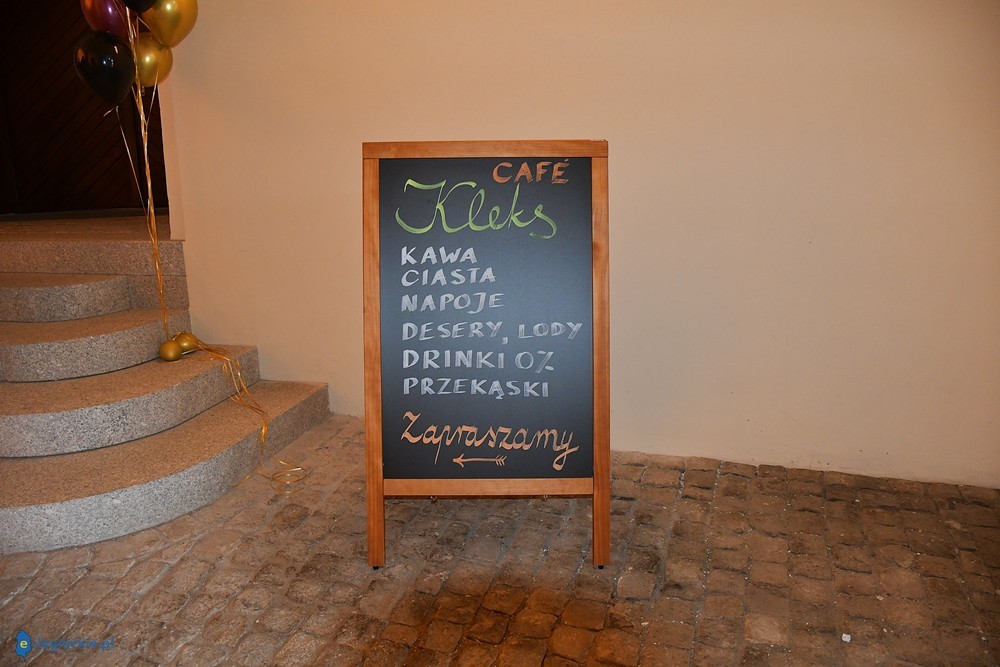 CAFÉ
Kleks
KAWA
CIASTA
NAPOJE
DESERY, LODY
DRINKI 0%
PRZEKĄSKI
Zapraszamy